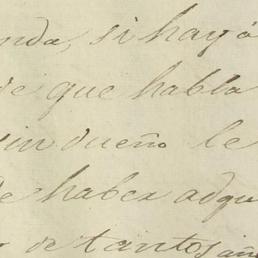 nda, si hay ó
de que habla
in dueño le
de haber adqu
r de tantos añ